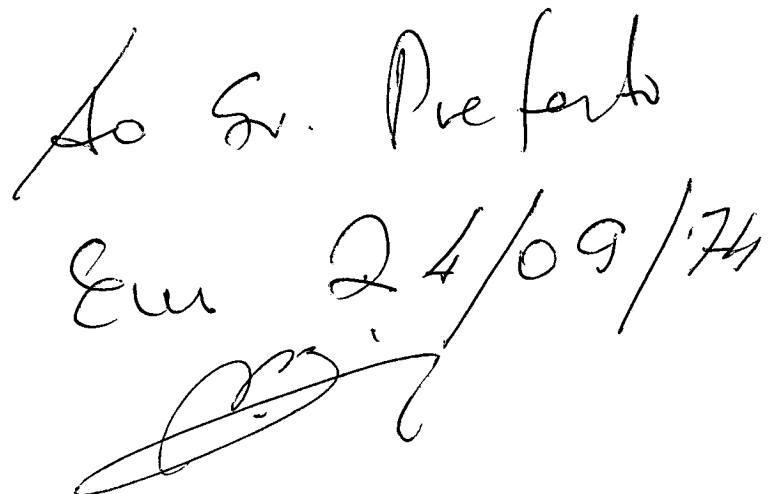 Ao Sr. Prefeito
Em 24/09/74